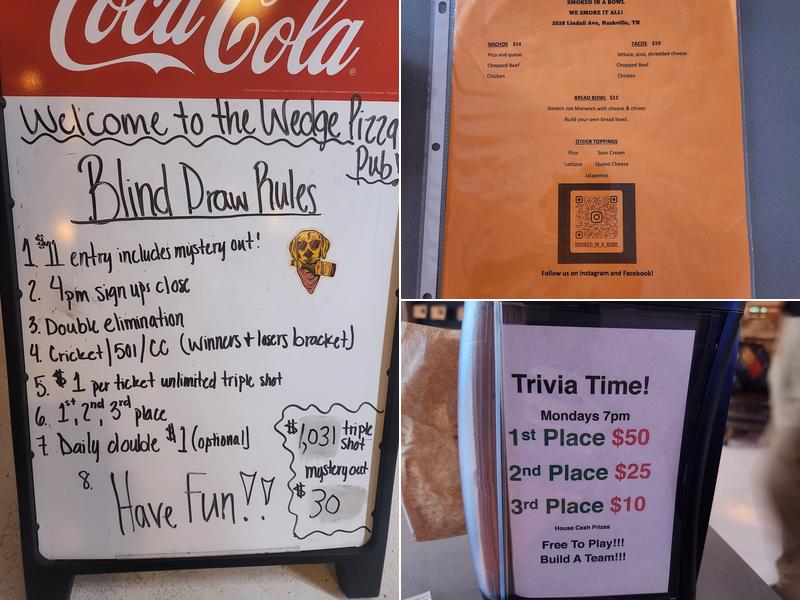 Coca-Cola
Welcome to the Wedge Pizza
Pub!
Blind Draw Rules
1. $11 entry includes mystery out!
2. 4pm sign ups close
3. Double elimination
4. Cricket/501/CC (winners + losers bracket)
5. $1 per ticket unlimited triple shot
6. 1st, 2nd, 3rd place
7. Daily double $1 (optional)
8. Have Fun!!
$1,031 triple
shot
mystery out
$30
SMOKED IN A BOWL
WE SMOKE IT ALL!
2028 Lindell Ave, Nashville, TN
NACHOS $14
Pico and queso
Chopped Beef
Chicken
TACOS $10
lettuce, pico, shredded cheese
Chopped Beef
Chicken
BREAD BOWL $12
Smokin Joe Manwich with cheese & chives
Build your own bread bowl.
OTHER TOPPINGS
Pico Sour Cream
Lettuce Queso Cheese
Jalapenos
SMOKED_IN_A_BOWL
Follow us on Instagram and Facebook!
Trivia Time!
Mondays 7pm
1st Place $50
2nd Place $25
3rd Place $10
House Cash Prizes
Free To Play!!!
Build A Team!!!